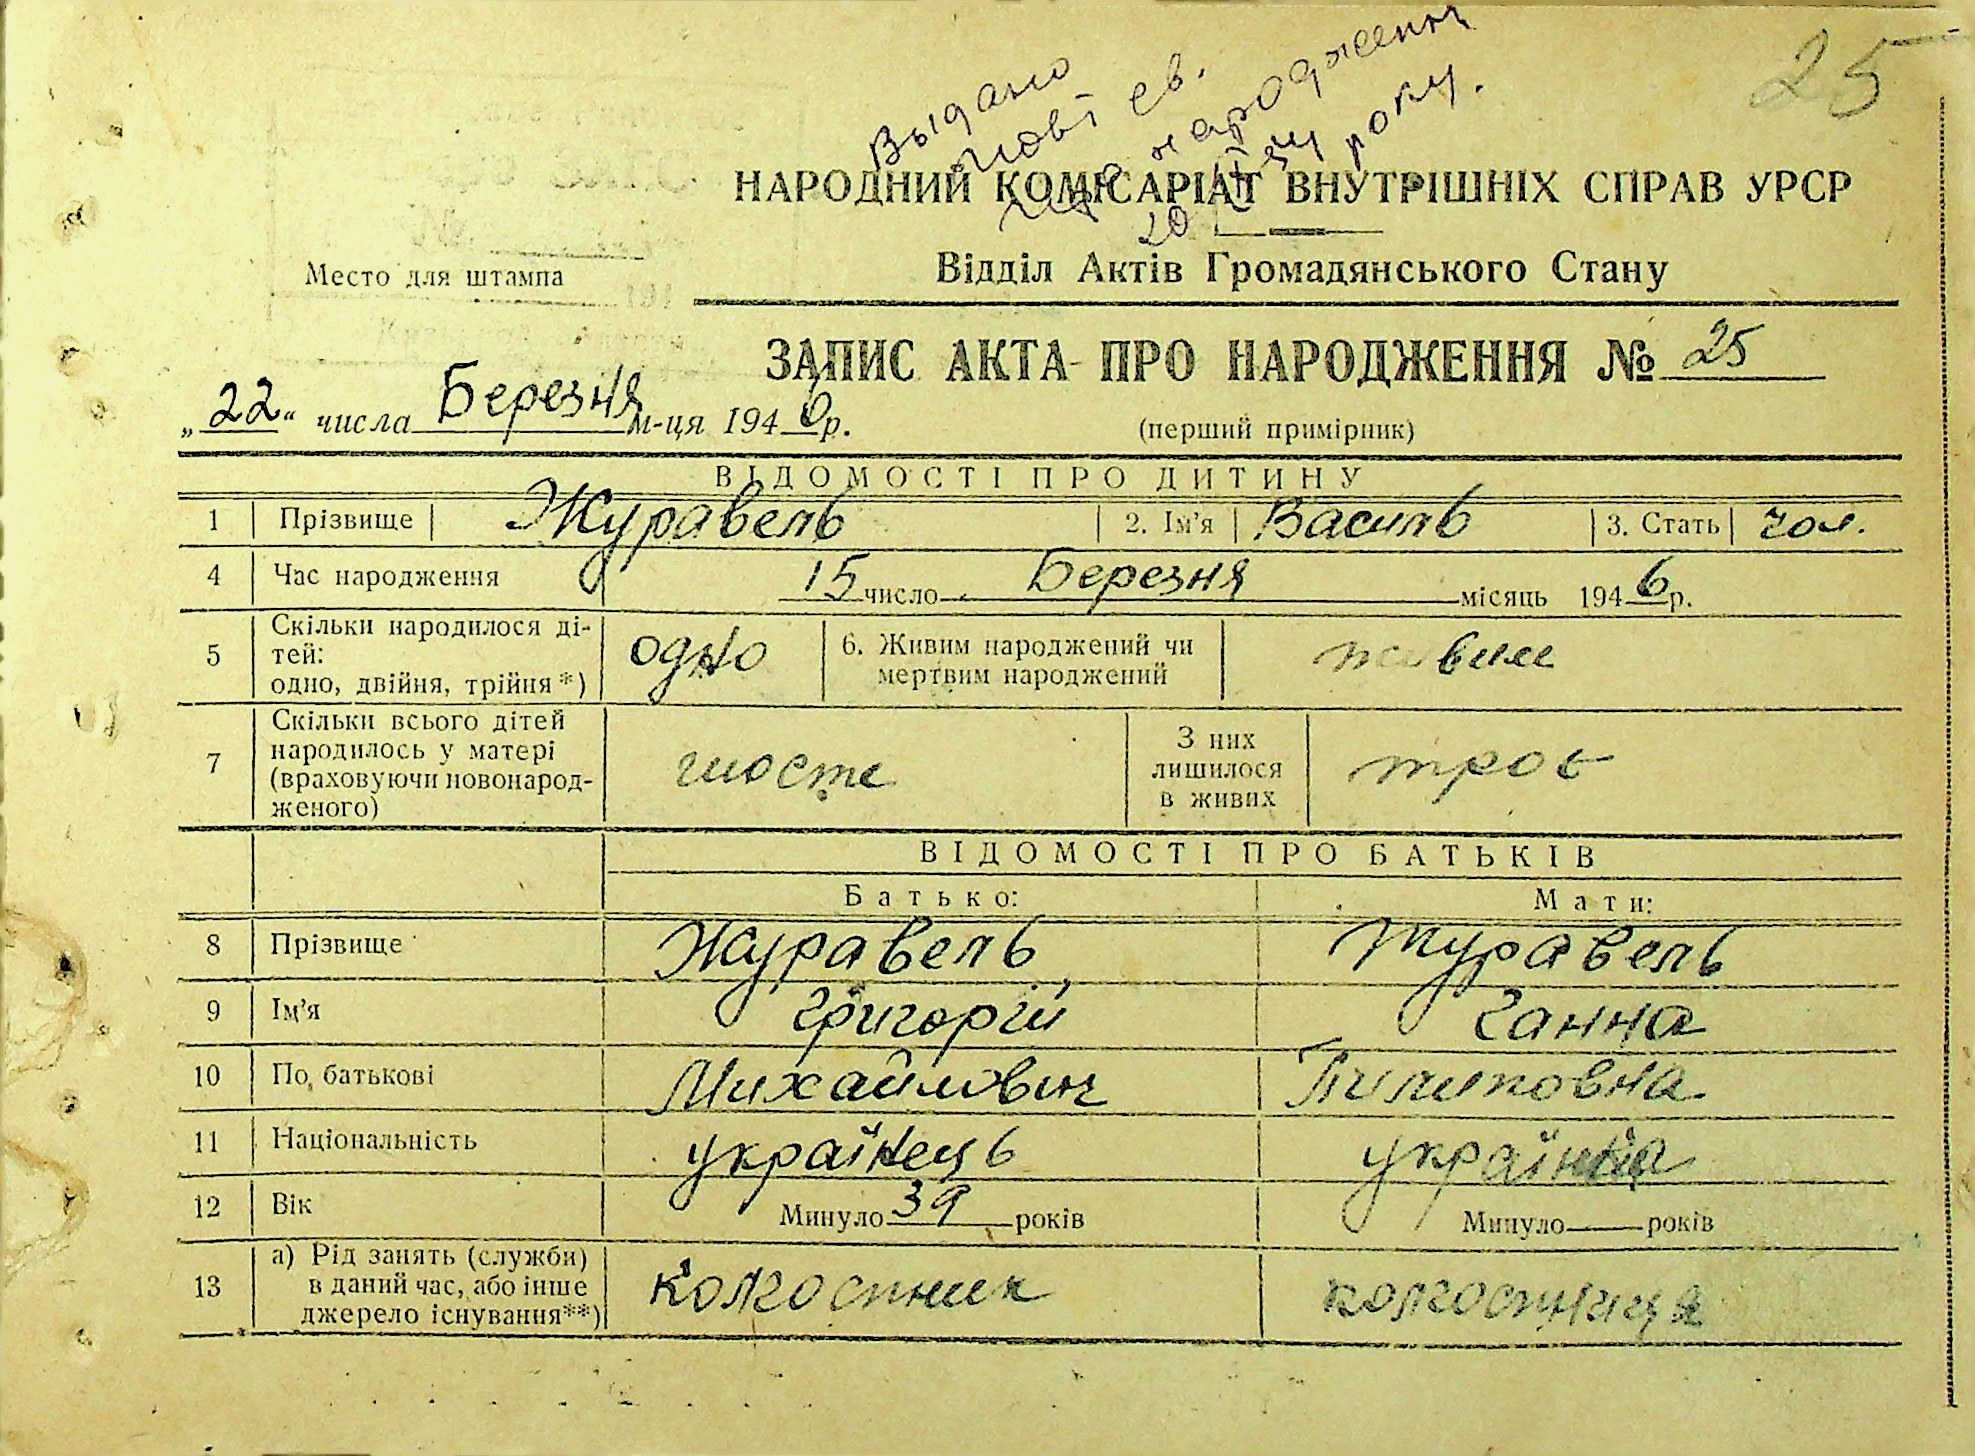 25
Выдано
нові св.
народження
року.
НАРОДНИЙ КОМІСАРІАТ ВНУТРІШНІХ СПРАВ УРСР
Место для штампа
Відділ Актів Громадянського Стану
ЗАПИС АКТА ПРО НАРОДЖЕННЯ № 25
„22“ числа Березня м-ця 1946 р.
(перший примірник)
ВІДОМОСТІ ПРО ДИТИНУ
1 Прізвище Журавель 2. Ім'я Василь 3. Стать чол.
4 Час народження 15 число Березня місяць 1946 р.
5 Скільки народилося ді-
тей:
одно, двійня, трійня*) одно 6. Живим народжений чи
мертвим народжений живим
7 Скільки всього дітей
народилось у матері
(враховуючи новонарод-
женого) шосте З них
лишилося
в живих троє
ВІДОМОСТІ ПРО БАТЬКІВ
Батько: Мати:
8 Прізвище Журавель Журавель
9 Ім'я Григорій Ганна
10 По батькові Михайлович Пилиповна
11 Національність українець українка
12 Вік Минуло 39 років Минуло років
13 а) Рід занять (служби)
в даний час, або інше
джерело існування**) колгоспник колгоспниця